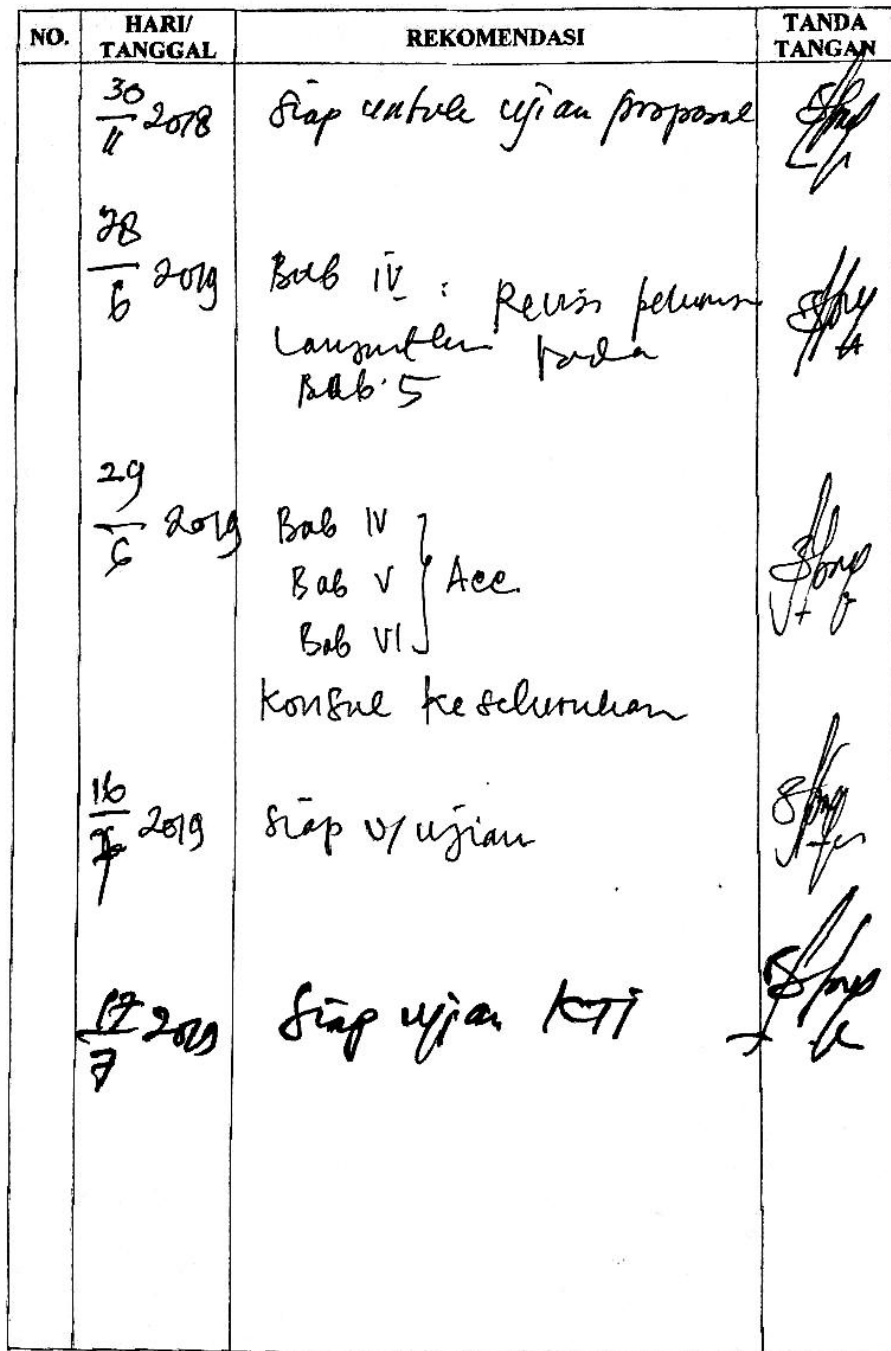 NO. HARI/TANGGAL REKOMENDASI TANDA TANGAN
30/11 2018 Siap untuk ujian proposal
28/6 2019 Bab IV : Revisi
Lanjutkan pada
Bab 5
29/6 2019 Bab IV
Bab V } Acc.
Bab VI
Konsul keseluruhan
16/7 2019 Siap u/ ujian
17/7 2019 Siap ujian KTI